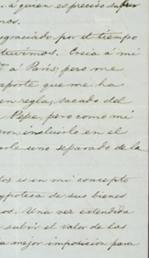 á quien es preciso sufrir
nos.
graciado por el tiempo
tuvimos. Creia á mi
á Paris; pero me
aporte que me ha
en regla, sacado del
Pepe, pero como mi
ron incluirlo en el
arle uno separado de la
tos is en mi concepto
hipoteca de sus bienes
os. Una vez estendida
subir el valor de las
a mejor imposicion para